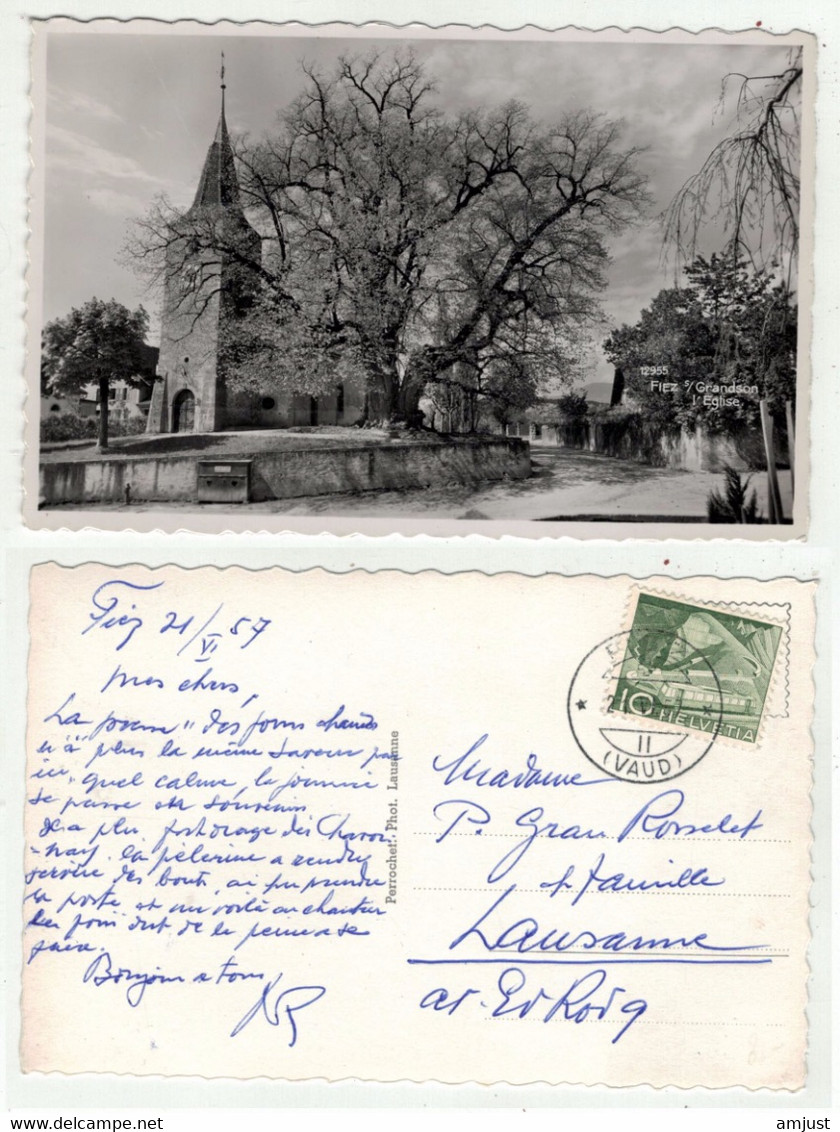 12955
FIEZ s/Grandson
l'Eglise
Fiez 21/VI 57
mes chers,
La " des foins chauds
n'a plus la même saveur
ici, quel calme, la journée
se passe en souvenirs
Il a plu, fort orage dès
la pèlerine a rendu
service des bouts, ai pu prendre
la poste et me voilà au chantier
les foins ont de la peine a se
faire.
Bonjour a tous
Perrochet. Phot. Lausanne
10
HELVETIA
II
(VAUD)
Madame
P. Gran Rosselet
et famille
Lausanne
av. Ed Rod 9
amjust
www.delcampe.net